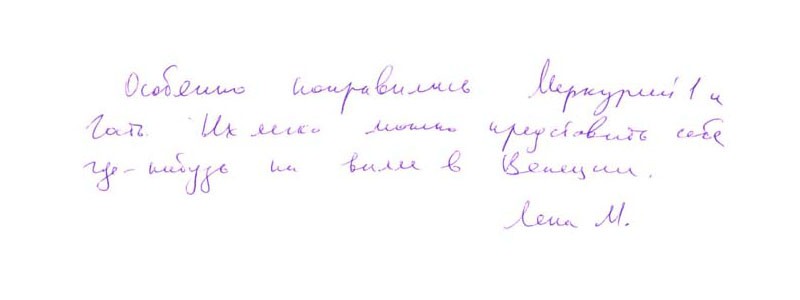 Особенно понравились Меркурий 1 и
Гать. Их легко можно представить себе
где-нибудь на вилле в Венеции.
Лена М.